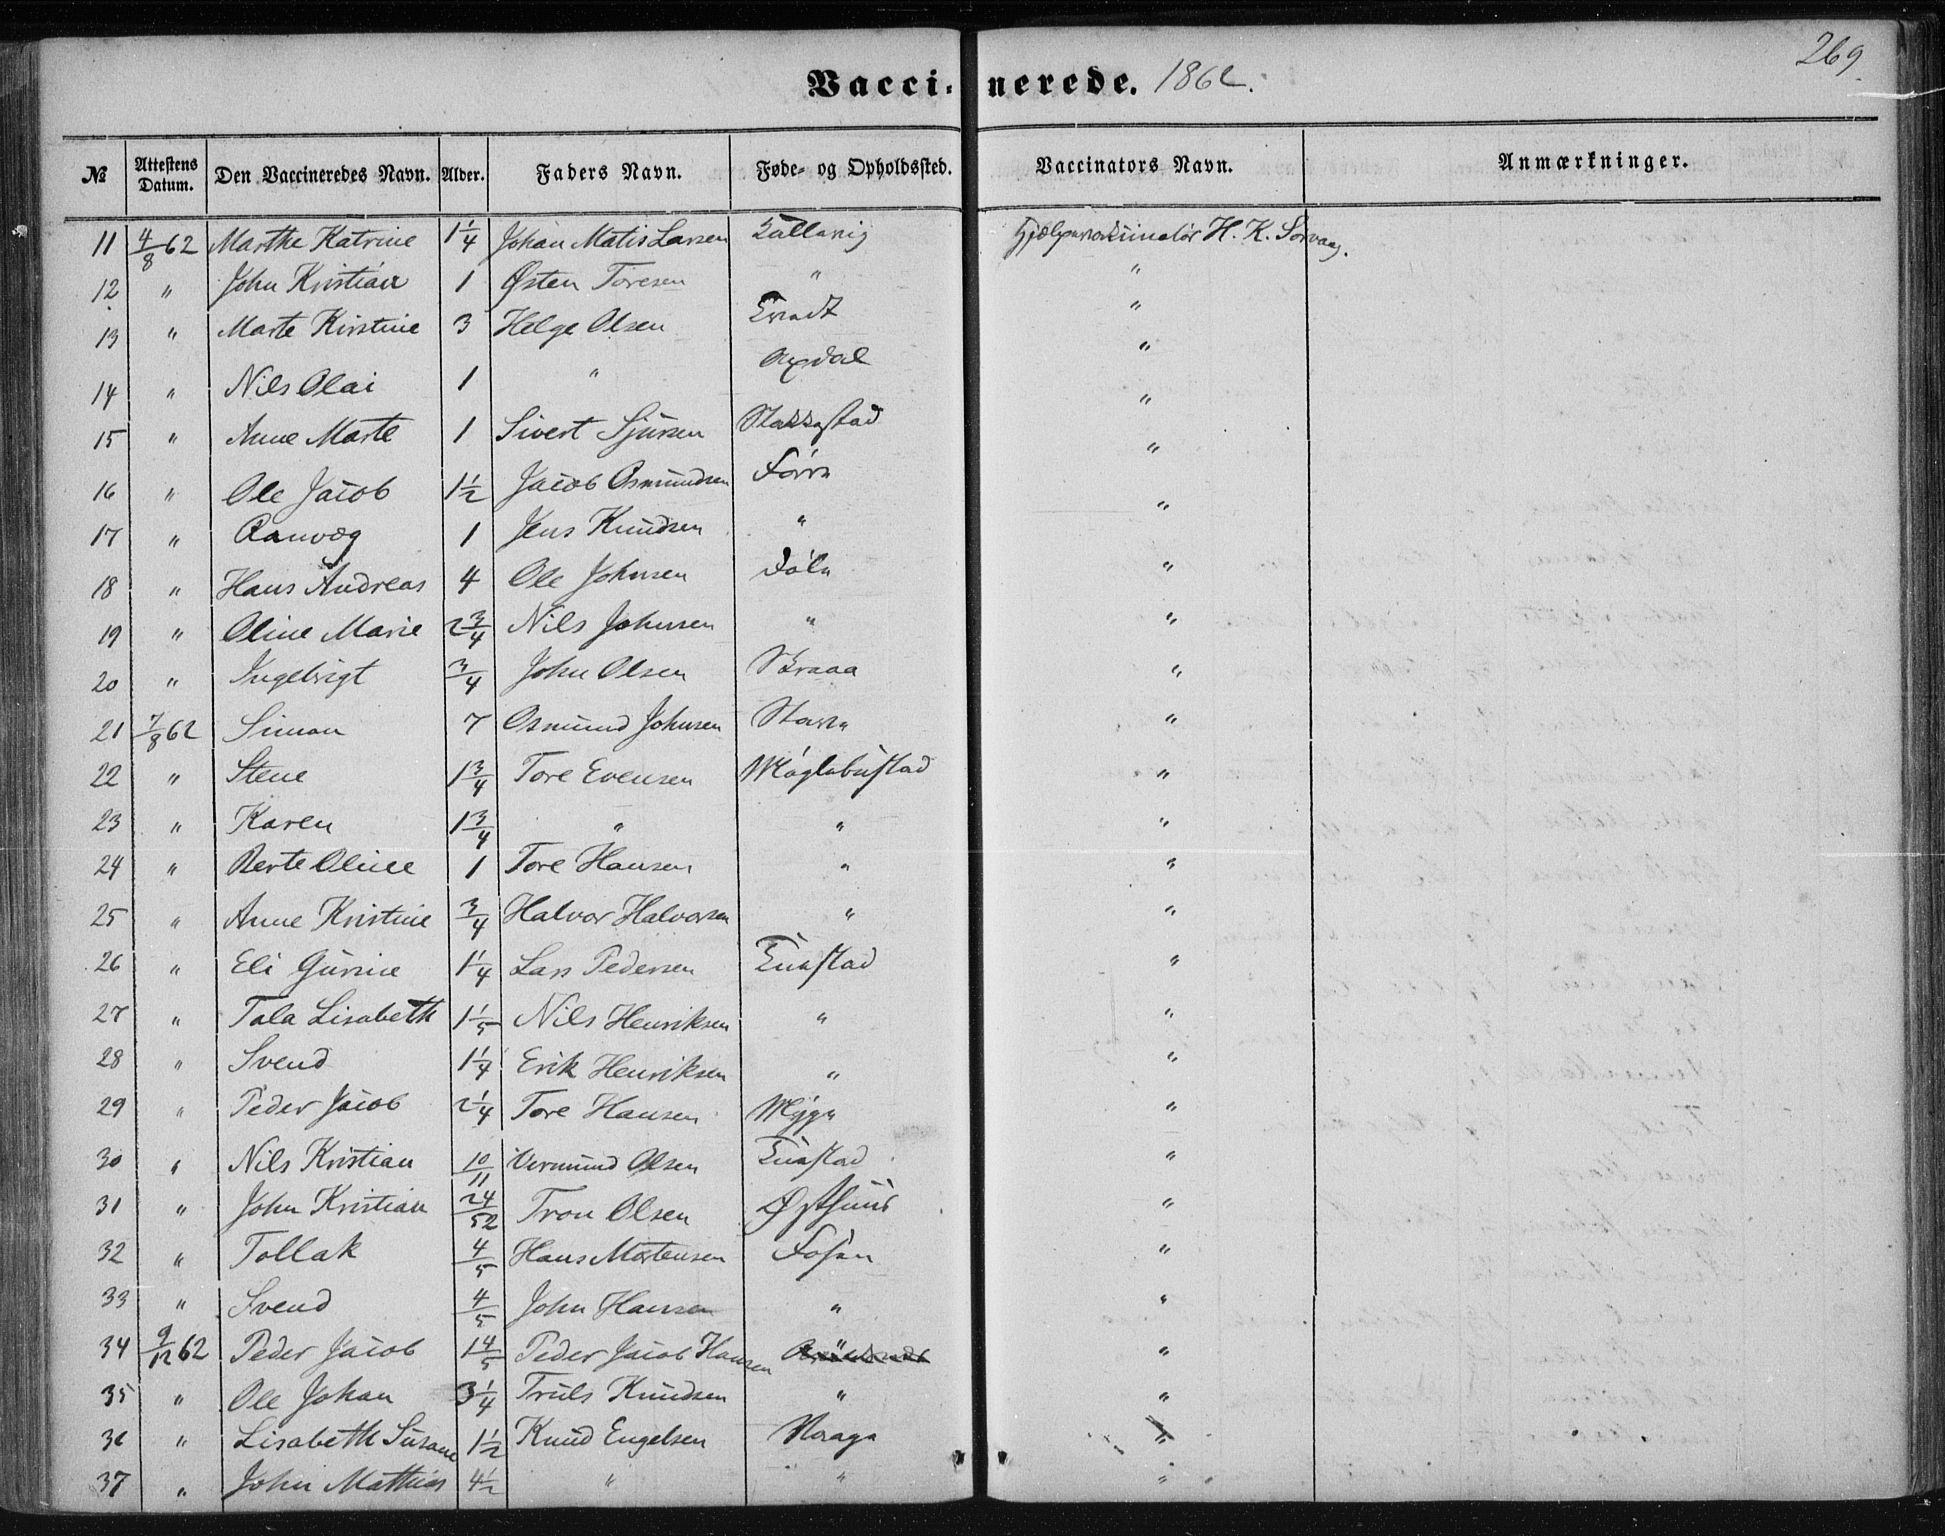 269.
Vaccinerede. 1862.
№ Attestens Datum. Den Vaccineredes Navn. Alder. Faders Navn. Føde- og Opholdssted. Vaccinators Navn. Anmærkninger.
11 4/8 62 Marthe Katrine 1 1/4 Johan Matis Larsen H. K. Sørvaag.
12 " John Kristian 1 Østen Toresen " "
13 " Marte Kirstine 3 Helge Olsen "
14 " Nils Olai 1 " Axdal "
15 " Anne Marte 1 Sivert Sjursen Stakkestad "
16 " Ole Jacob 1 1/2 Jacob Osmundsen Førre "
17 " Ranvæg 1 Jens Knudsen " "
18 " Hans Andreas 4 Ole Johnsen "
19 " Oline Marie 2 3/4 Nils Johnsen " "
20 " Ingebrigt 3/4 John Olsen "
21 7/8 62 Simon 7 Osmund Johnsen "
22 " Stene 1 3/4 Tore Evensen Møglebustad "
23 " Karen 1 3/4 " " "
24 " Berte Oline 1 Tore Hansen " "
25 " Anne Kristine 3/4 Halvor Halvorsen " "
26 " Eli Gurine 1 1/4 Lars Pedersen "
27 " Tala Lisabeth 1 1/5 Nils Henriksen " "
28 " Svend 1 1/4 Erik Henriksen " "
29 " Peder Jacob 2 1/4 Tore Hansen "
30 " Nils Kristian 10/11 Vermund Olsen "
31 " John Kristian 24/52 Tron Olsen Østhuus "
32 " Tollak 4/5 Hans Mortensen Fosen "
33 " Svend 4/5 John Hansen " "
34 9/12 62 Peder Jacob 1 4/5 Peder Jacob Hansen "
35 " Ole Johan 3 1/4 Truls Knudsen " "
36 " Lisabeth Susane 1 1/2 Knud Engelsen "
37 " John Mathias 4 1/2 " " "